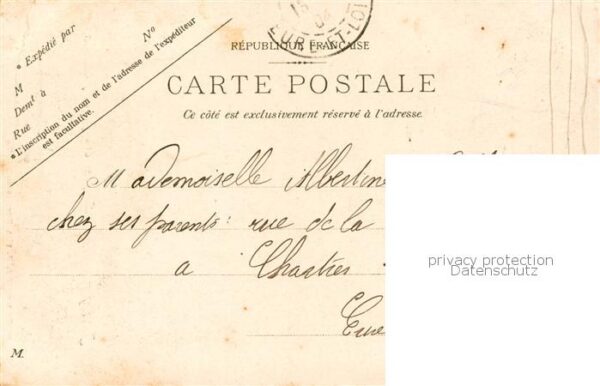 * Expédié par
M
Nº
Demt à
Rue
* L'inscription du nom et de l'adresse de l'expéditeur
est facultative.
EURE-ET-LOIR
RÉPUBLIQUE FRANÇAISE
CARTE POSTALE
Ce côté est exclusivement réservé à l'adresse.
Mademoiselle Albertine
chez ses parents : rue de la
a Chartres
Eure
M.
privacy protection
Datenschutz